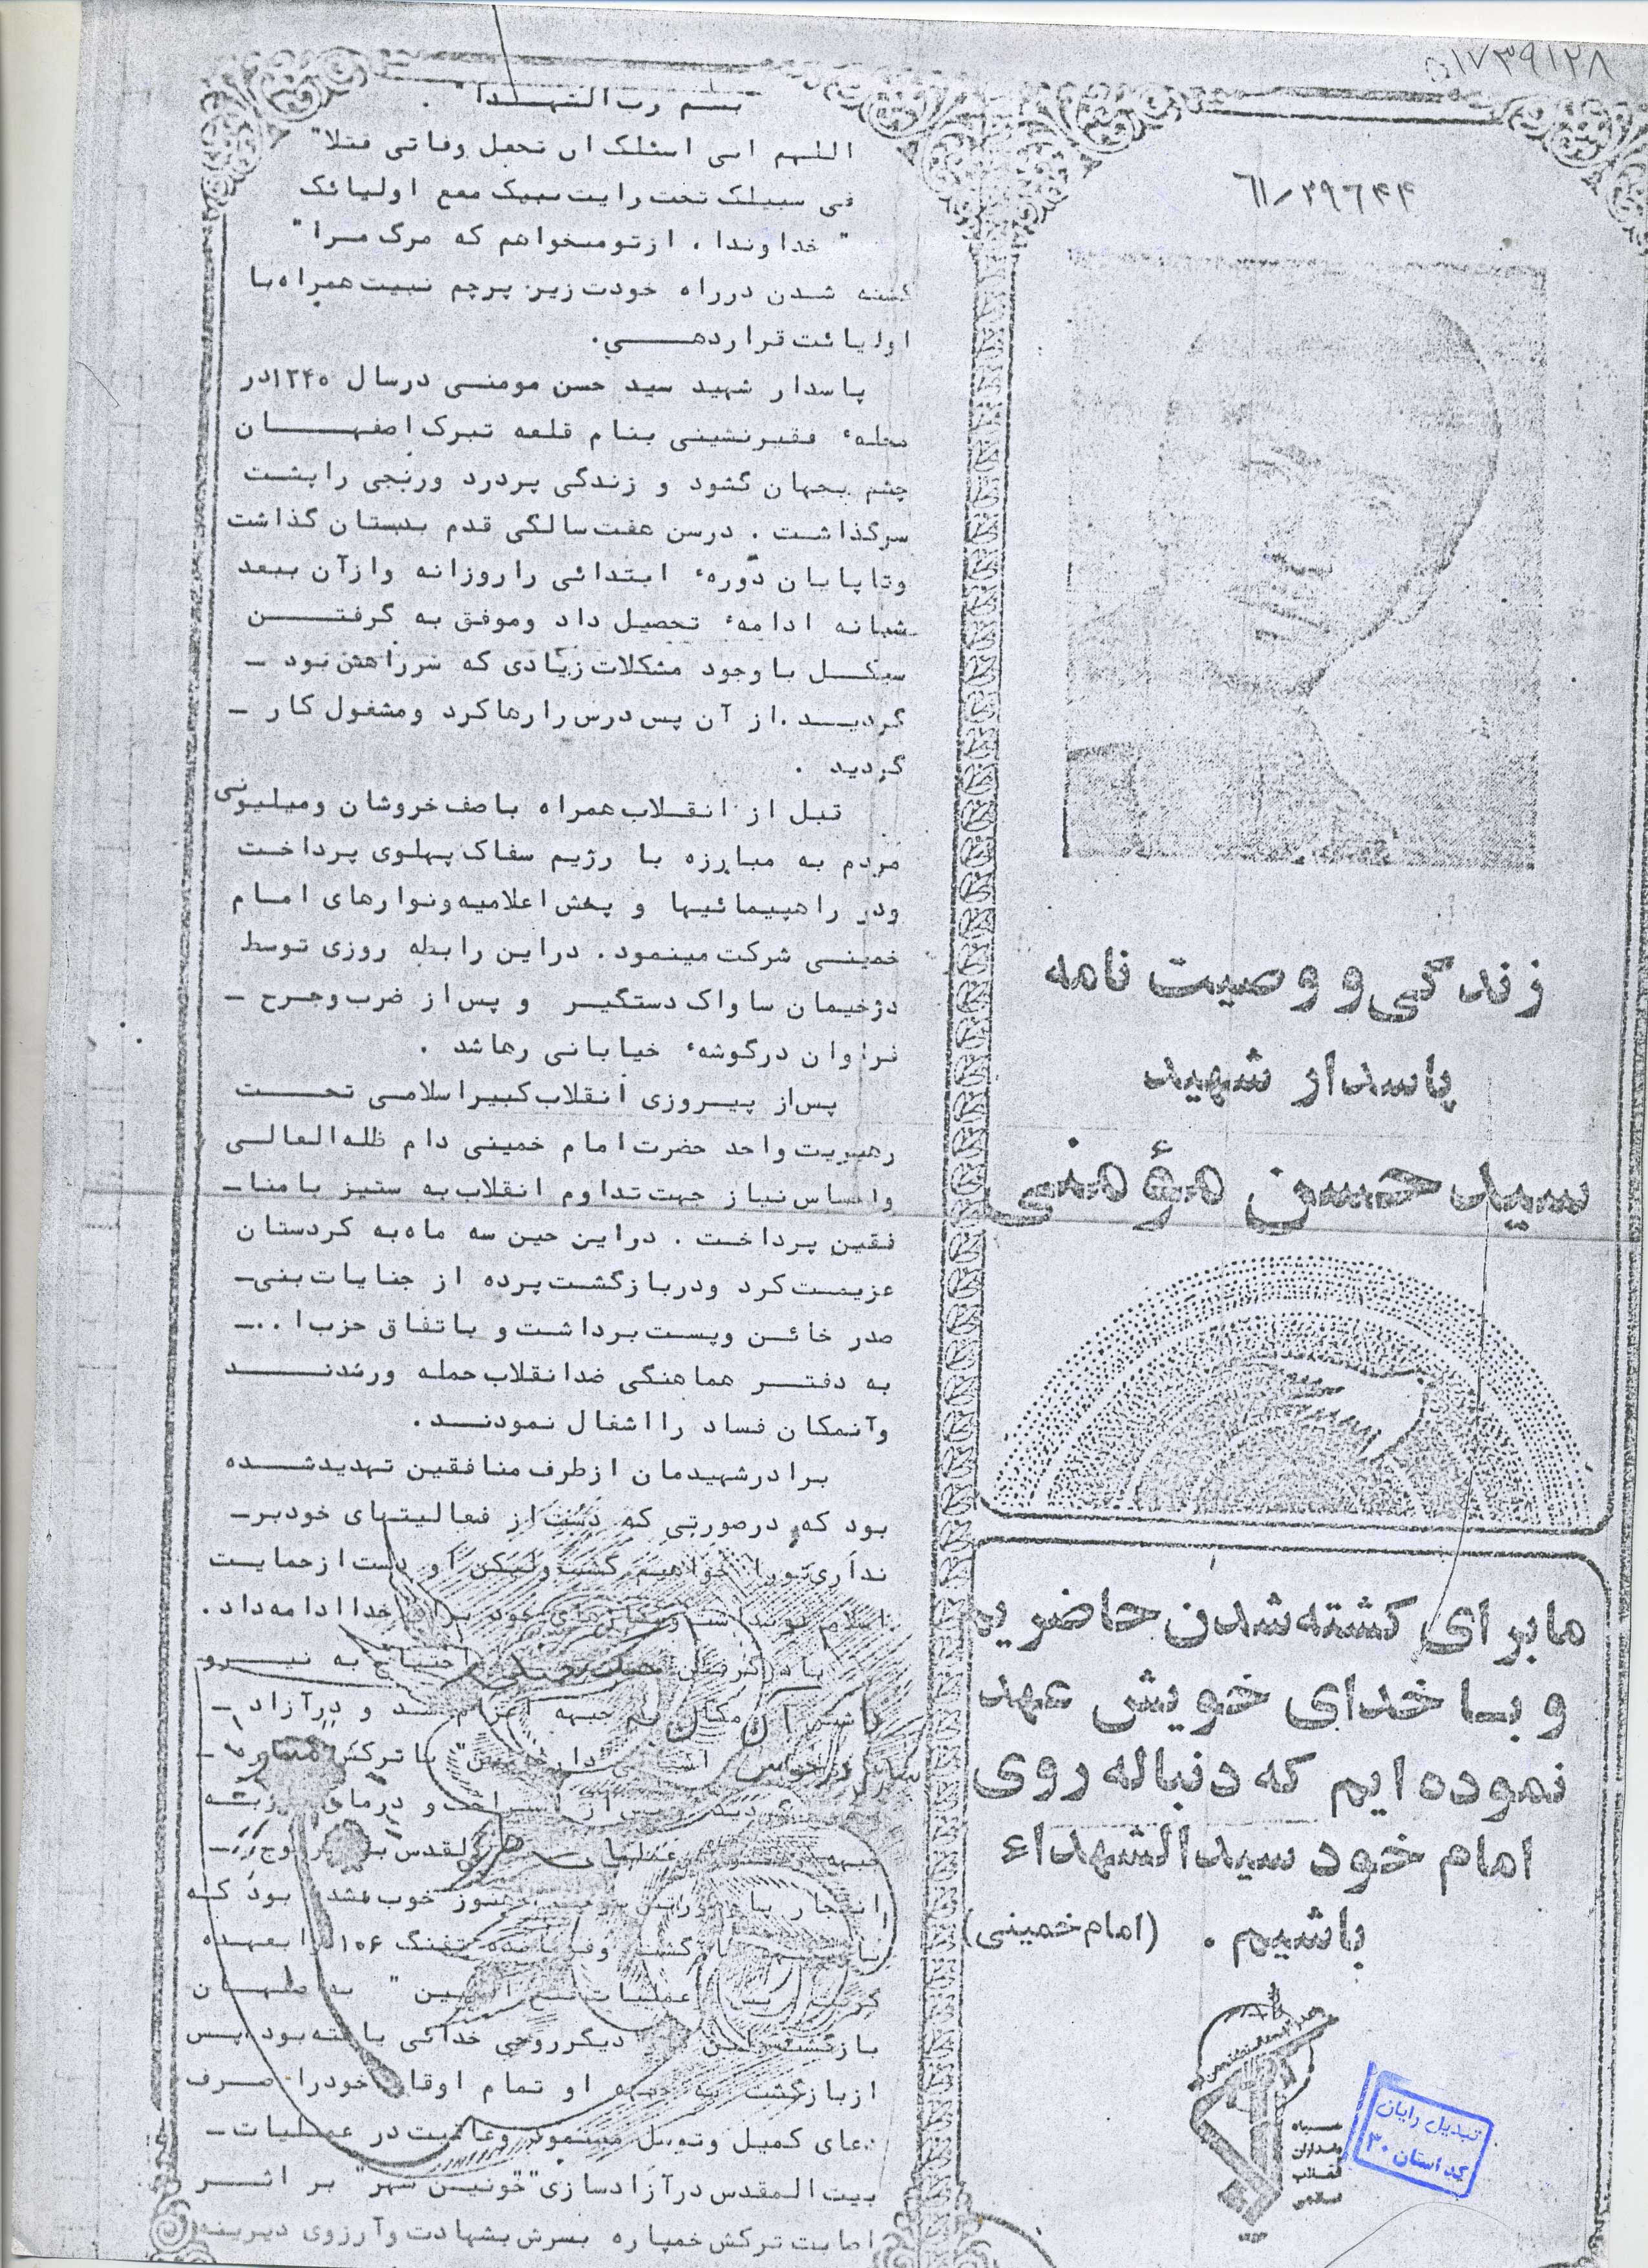 ۵۱۷۳۹۱۲۸
۶۱/۲۹۶۴۴
زندگی و وصیت نامه
پاسدار شهید
سید حسن مؤمنی
ما برای کشته شدن حاضریم
و با خدای خویش عهد
نموده ایم که دنباله روی
امام خود سیدالشهداء
باشیم . (امام خمینی)
سپاه
پاسداران
انقلاب
اسلامی
تبدیل رایان
کد استان ۳۰
بسم رب الشهدا .
اللهم انی اسئلک ان تجعل وفاتی قتلا"
فی سبیلک تحت رایت نبیک مع اولیائک
" خداوندا ، از تو میخواهم که مرگ مرا "
کشته شدن در راه خودت زیر پرچم نبیت همراه با
اولیائت قرار دهی.
پاسدار شهید سید حسن مومنی در سال ۱۳۴۰ در
محلهٔ فقیرنشینی بنام قلعه تبرک اصفهان
چشم بجهان گشود و زندگی پردرد ورنجی را پشت
سرگذاشت . درسن هفت سالگی قدم بدبستان گذاشت
وتا پایان دورهٔ ابتدائی را روزانه وازآن ببعد
شبانه ادامهٔ تحصیل داد وموفق به گرفتن
سیکل با وجود مشکلات زیادی که سرراهش بود -
گردید .از آن پس درس را رها کرد ومشغول کار -
گردید .
قبل از انقلاب همراه با صف خروشان ومیلیونی
مردم به مبارزه با رژیم سفاک پهلوی پرداخت
ودر راهپیمائیها و پخش اعلامیه ونوارهای امام
خمینی شرکت مینمود . دراین رابطه روزی توسط
دژخیمان ساواک دستگیر و پس از ضرب وجرح -
فراوان درگوشهٔ خیابانی رها شد .
پس از پیروزی انقلاب کبیر اسلامی تحت
رهبریت واحد حضرت امام خمینی دام ظله العالی
واحساس نیاز جهت تداوم انقلاب به ستیز با منا-
فقین پرداخت . دراین حین سه ماه به کردستان
عزیمت کرد ودربازگشت پرده از جنایات بنی-
صدر خائن وپست برداشت و با تفاق حزب ا..-
به دفتر هماهنگی ضدانقلاب حمله ورشدند
وآنمکان فساد را اشغال نمودند .
برادر شهیدمان ازطرف منافقین تهدید شده
بود که درصورتی که دست از فعالیتهای خودبر-
نداری تورا خواهیم کشت ولیکن او دست ازحمایت
اسلام خدا ادامه داد .
احتیاج به نیرو
جبهه اعزام شد و درآزاد -
با ترکش
و درمان
القدس
هنوز خوب نشده بود که
تفنگ ۱۰۶ را بعهده
عملیات به اصفهان
بازگشت دیگر روحی خدائی یافته بود .پس
ازبازگشت او تمام اوقات خودرا صرف
دعای کمیل وتوسل مینمود وعاقبت در عملیات -
بیت المقدس درآزادسازی "خونین شهر" بر اثر
اصابت ترکش خمپاره بسرش بشهادت وآرزوی دیرینه